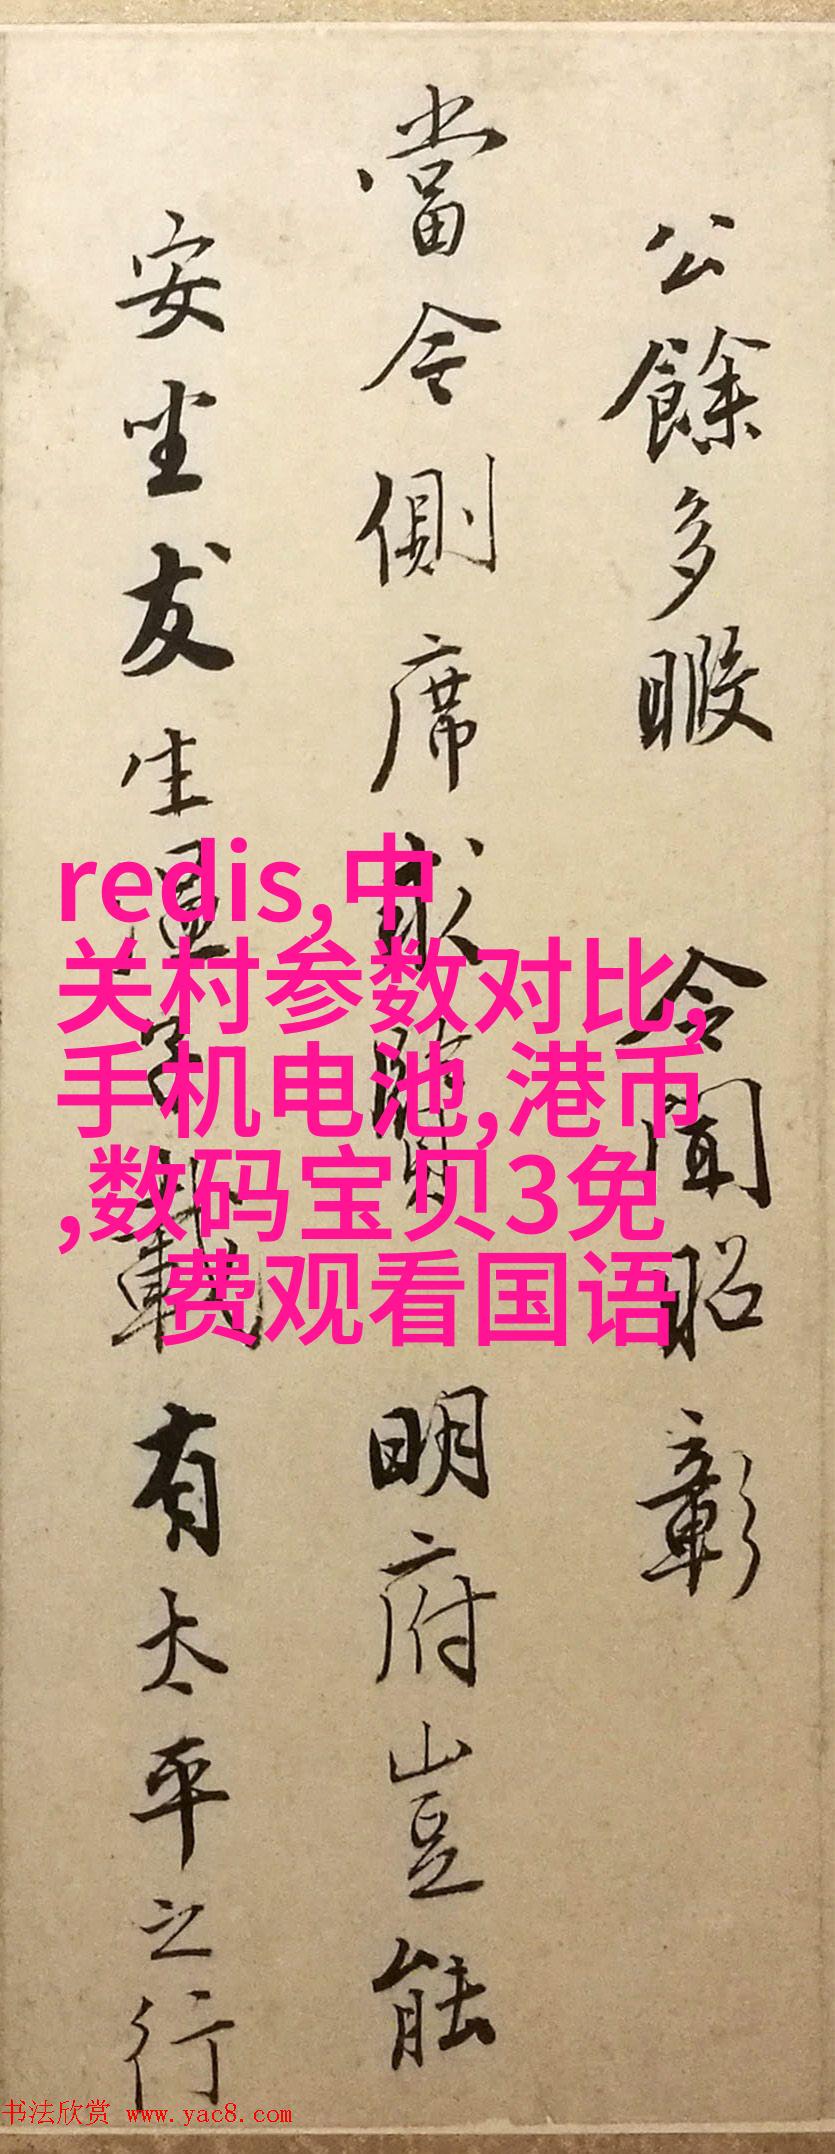 公餘多暇 令聞昭彰
當令側席求賢 明府豈能
安坐友生溫 載有太平之行
redis,中
关村参数对比,
手机电池,港币
,数码宝贝3免
费观看国语
书法欣赏 www.yac8.com